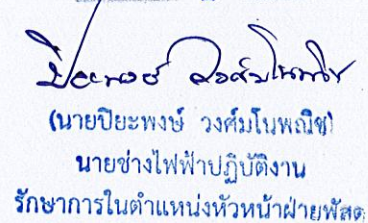 ปิยะพงษ์ วงศ์มโนพณิช
(นายปิยะพงษ์ วงศ์มโนพณิช)
นายช่างไฟฟ้าปฏิบัติงาน
รักษาการในตำแหน่งหัวหน้าฝ่ายพัสดุ